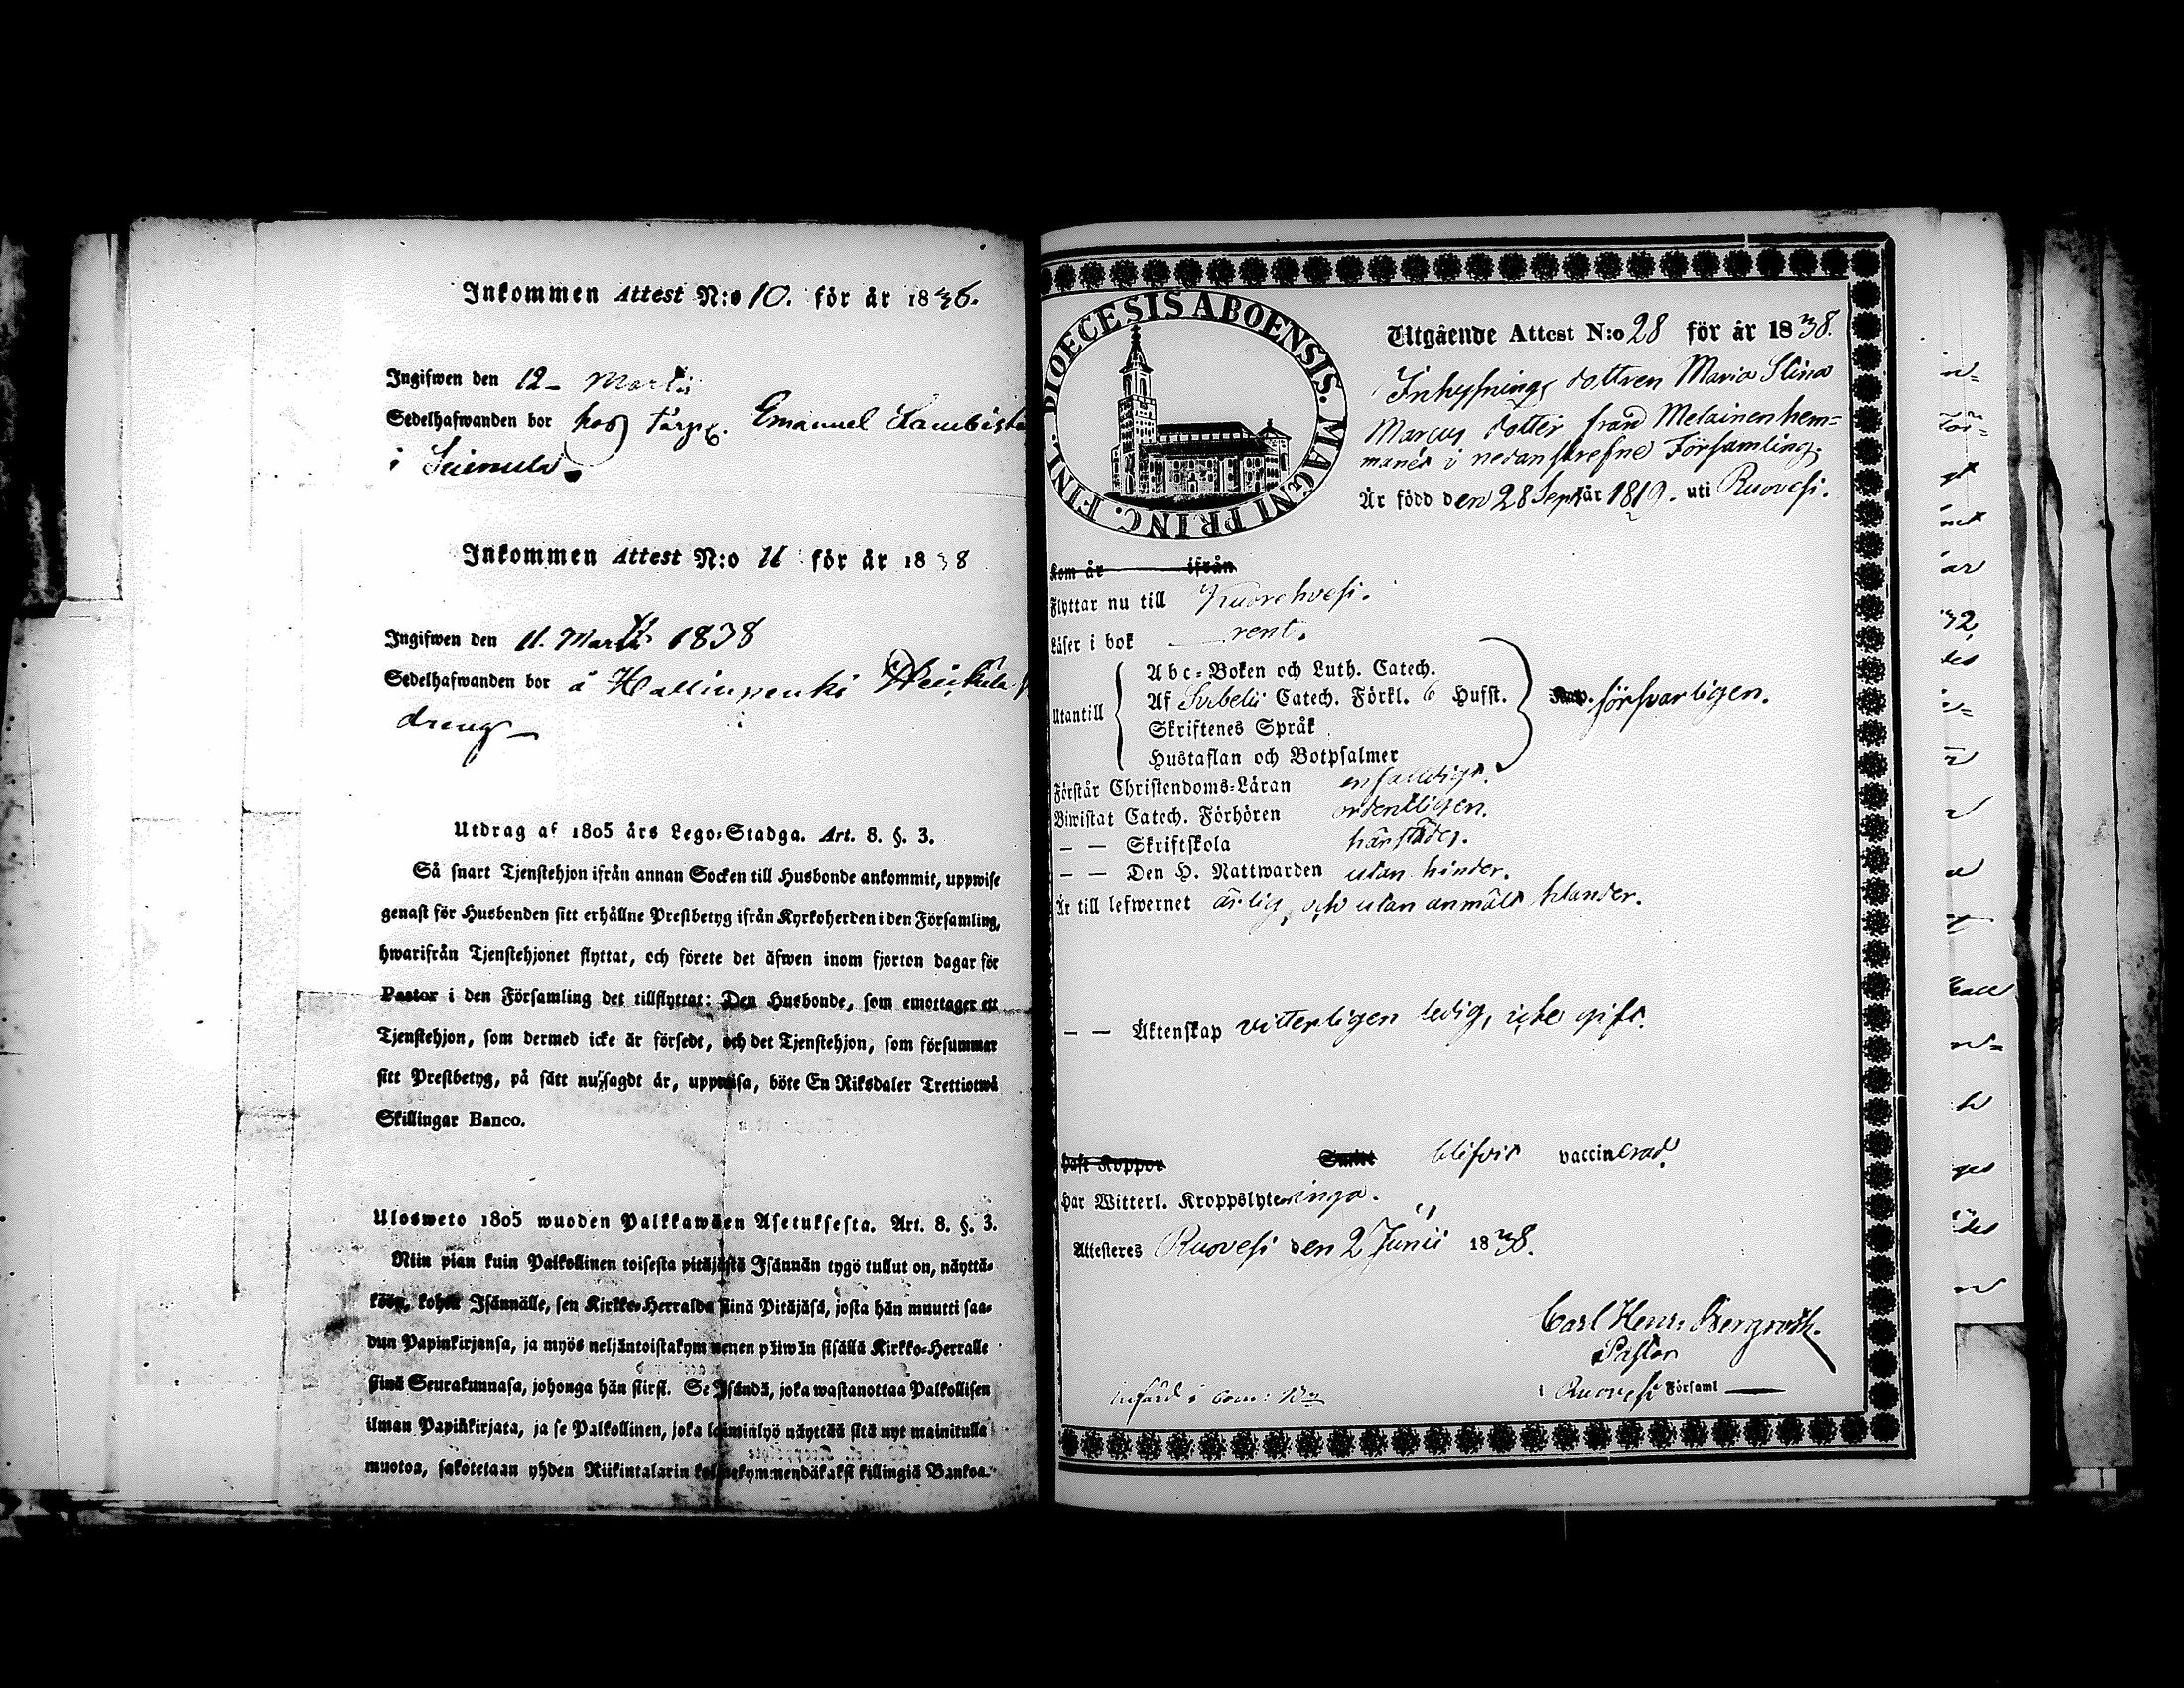 Inkommen Attest N:o 10. för år 1836.
Ingifwen den 12 Martii
Sedelhafwanden bor hos Torp. Emanuel
i
Inkommen Attest N:o 11 för år 1838
Ingifwen den 11. Martii 1838
Sedelhafwanden bor å
dreng
Utdrag af 1805 års Lego-Stadga. Art. 8. §. 3.
Så snart Tjenstehjon ifrån annan Socken till Husbonde ankommit, uppwise
genast för Husbonden sitt erhållne Prestbetyg ifrån Kyrkoherden i den Församling,
hwarifrån Tjenstehjonet flyttat, och förete det äfwen inom fjorton dagar för
Pastor i den Församling det tillflyttat: Den Husbonde, som emottager ett
Tjenstehjon, som dermed icke är försedt, och det Tjenstehjon, som försummar
sitt Prestbetyg, på sätt nu sagdt är, uppwisa, böte En Riksdaler Trettiotwå
Skillingar Banco.
Ulosweto 1805 wuoden Palkkawäen Asetuksesta. Art. 8. §. 3.
Niin pian kuin Palkollinen toisesta pitäjästä Isännän tygö tullut on, näyttä-
köön, kohta Isännälle, sen Kirkko-Herralda siinä Pitäjäsä, josta hän muutti saa-
dun Papinkirjansa, ja myös neljäntoistakymmenen päiwän sisällä Kirkko-Herralle
siinä Seurakunnasa, johonga hän siirsi. Se Isändä, joka wastanottaa Palkollisen
ilman Papinkirjata, ja se Palkollinen, joka laiminlyö näyttää sitä nyt mainitulla
muotoa, sakotetaan yhden Riikintalarin kolmekymmendäkaksi killingiä Bankoa.
DIOECESIS ABOENSIS. MAGNI PRINC. FINL.
Utgående Attest N:o 28 för år 1838.
Inhysnings dottren Maria Stina
Marcus dotter från Melainen hem-
manet i nedanskrefne Församling.
Är född den 28 Sept. år 1819. uti Ruovesi.
Kom år ifrån
Flyttar nu till Kuorehvesi.
Läser i bok rent.
Utantill
Abc-Boken och Luth. Catech.
Af Svebelii Catech. Förkl. 6 Hufst.
Skriftenes Språk
Hustaflan och Botpsalmer
försvarligen.
Förstår Christendoms-Läran enfaldigt.
Biwistat Catech. Förhören ordentligen.
— — Skriftskola härstädes.
— — Den H. Nattwarden utan hinder.
Är till lefwernet ärlig, och utan anmält klander.
— — Äktenskap vitterligen ledig, icke gift.
haft Koppor blifvit vaccinerad.
Har Witterl. Kroppslyte inga.
Attesteres Ruovesi den 2 Junii 1838.
Carl Henr: Bergroth.
Pastor
i Ruovesi Församl
Införd i Com: